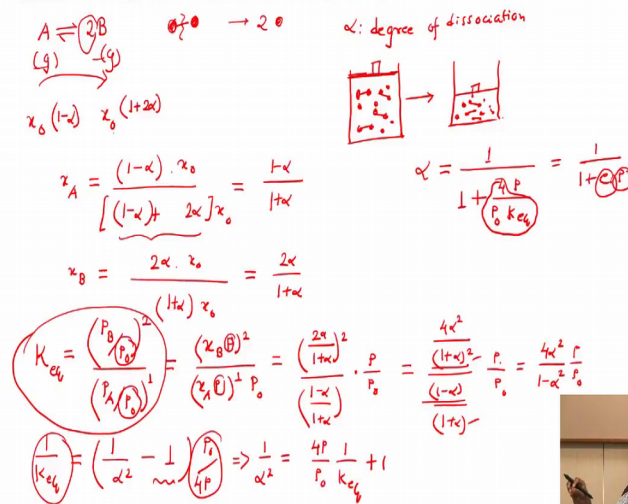 A ⇌ 2B → 2 α: degree of dissociation
(g) (g)
x₀(1-α) x₀(1+2α)
x_A = (1-α) · x₀ / [(1-α) + 2α] x₀ = 1-α / 1+α
α = 1 / (1 + 4P / P₀ K_eq) = 1 / 1 + c P
x_B = 2α · x₀ / (1+α) x₀ = 2α / 1+α
K_eq = (P_B/P₀)² / (P_A/P₀)¹ = (x_B P)² / (x_A P)¹ P₀ = (2α / 1+α)² / (1-α / 1+α) · P / P₀ = 4α² / (1+α)² / (1-α) / (1+α) · P / P₀ = 4α² / 1-α² P / P₀
1 / K_eq = (1 / α² - 1) P₀ / 4P ⇒ 1 / α² = 4P / P₀ 1 / K_eq + 1